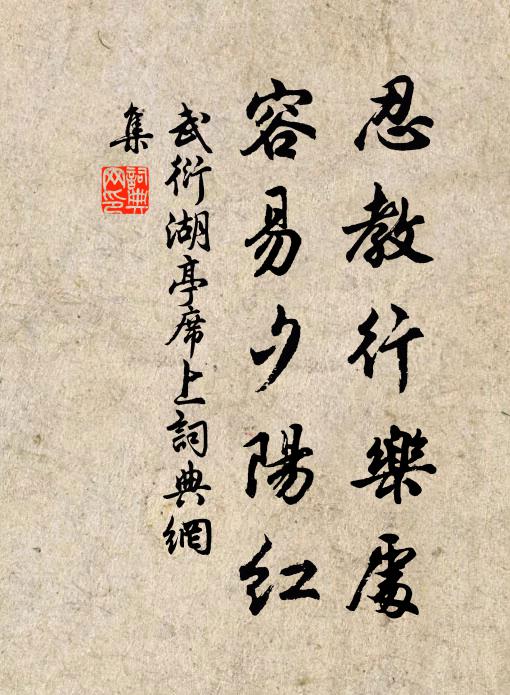 忍教行樂處
容易夕陽紅
武衍湖亭席上詞典網
集
詞典
网印